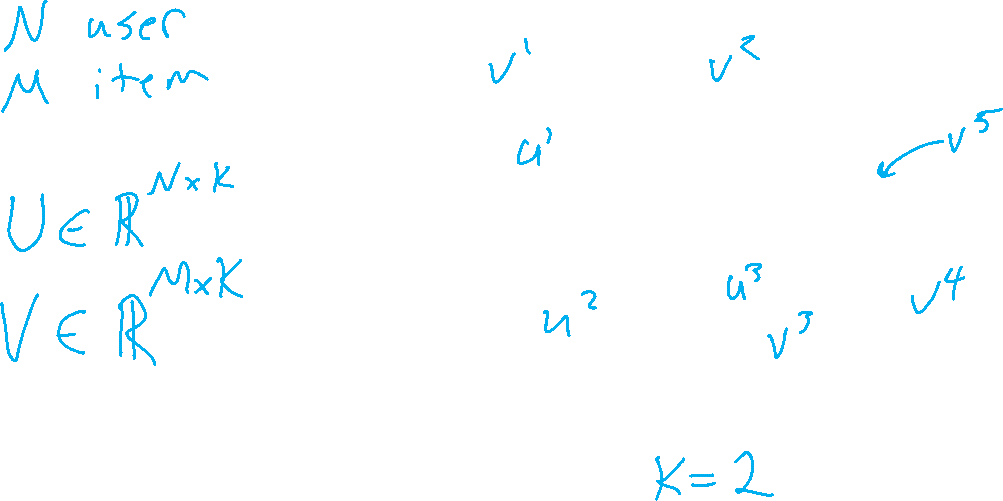 N user
M item
U ∈ ℝ^{N×K}
V ∈ ℝ^{M×K}
v¹ v²
u¹
v⁵
u² u³ v⁴
v³
K = 2